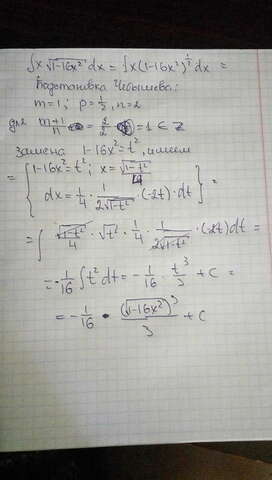 ∫x√(1-16x²) dx = ∫x(1-16x²)^(1/2) dx =
Подстановка Чебышева:
m=1; p=1/2, n=2
где (m+1)/n = 2/2 = 1 ∈ Z
замена 1-16x²=t², имеем
= { 1-16x²=t²; x = √(1-t²)/4
dx = 1/4 · 1/(2√(1-t²)) · (-2t) · dt } =
= ∫ √(1-t²)/4 · √t² · 1/4 · 1/(2√(1-t²)) · (-2t) dt =
= -1/16 ∫t² dt = -1/16 · t³/3 + C =
= -1/16 · (√(1-16x²))³/3 + C